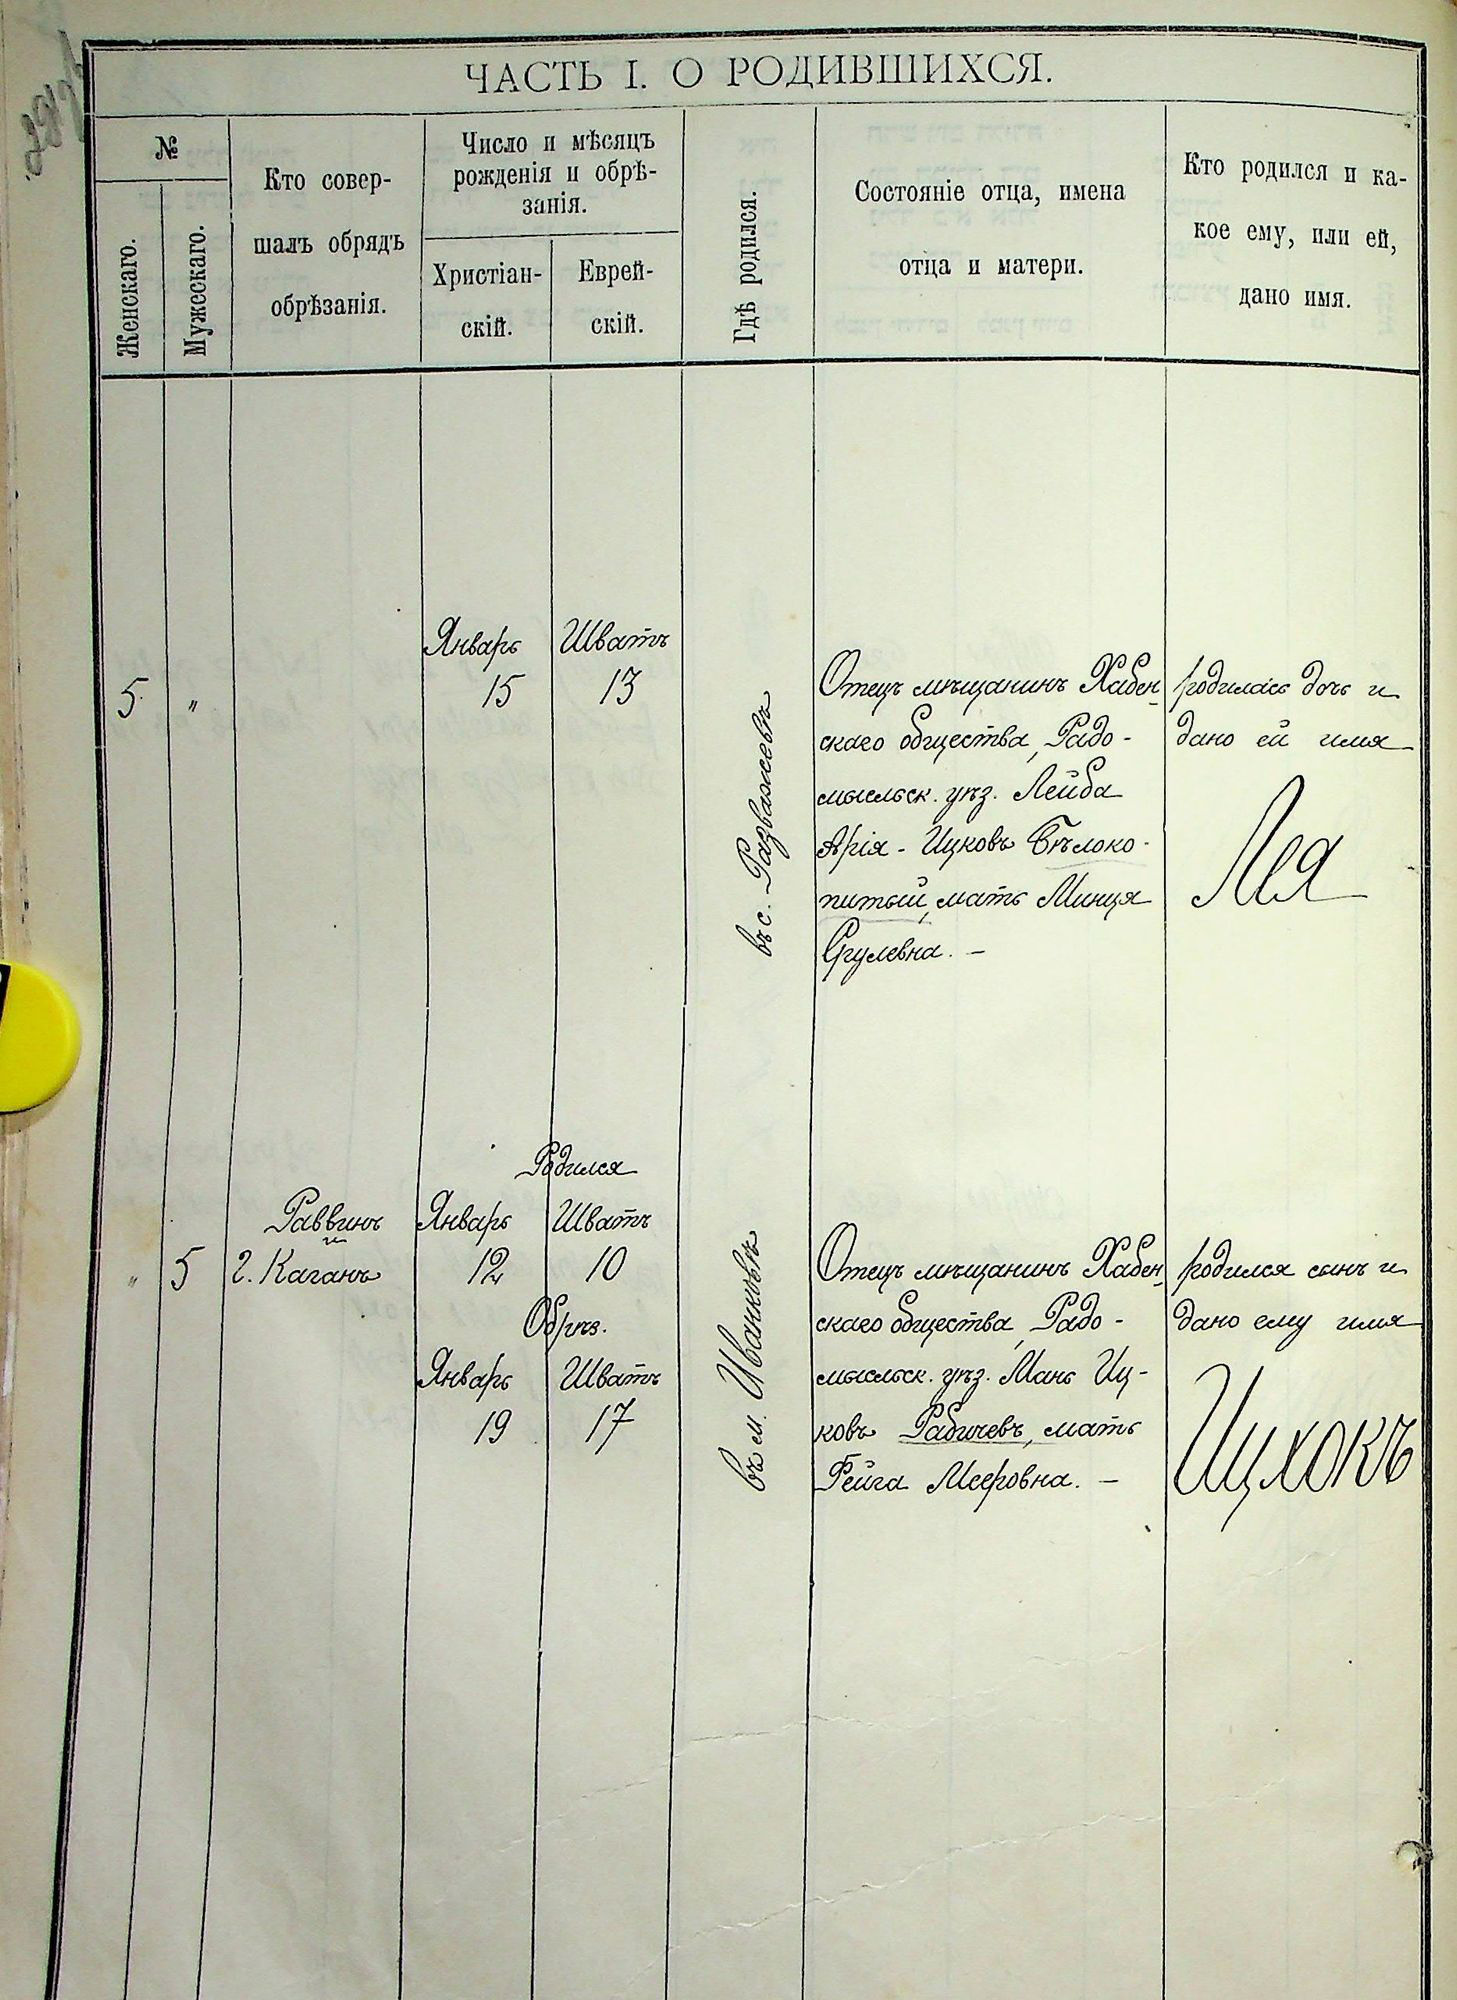 ЧАСТЬ I. О РОДИВШИХСЯ.
№
Женскаго.
Мужескаго.
Кто совер-
шалъ обрядъ
обрѣзанія.
Число и мѣсяцъ
рожденія и обрѣ-
занія.
Христіан-
скій.
Еврей-
скій.
Гдѣ родился.
Состояніе отца, имена
отца и матери.
Кто родился и ка-
кое ему, или ей,
дано имя.
5
"
Январь
15
Шватъ
13
въ с. Разважевѣ
Отецъ мѣщанинъ Хабен-
скаго общества, Радо-
мысльск. уѣз. Лейба
Арія - Ицковъ Бѣлоко-
питый, мать Минця
Срулевна. —
родилась дочь и
дано ей имя
Лея
"
5
Раввинъ
Г. Каганъ
Родился
Январь
12
Шватъ
10
Обрѣз.
Январь
19
Шватъ
17
въ м. Иванковѣ
Отецъ мѣщанинъ Хабен-
скаго общества, Радо-
мысльск. уѣз. Мань Иц-
ковъ Рабичевъ, мать
Фейга Мееровна. —
родился сынъ и
дано ему имя
Ицхокъ